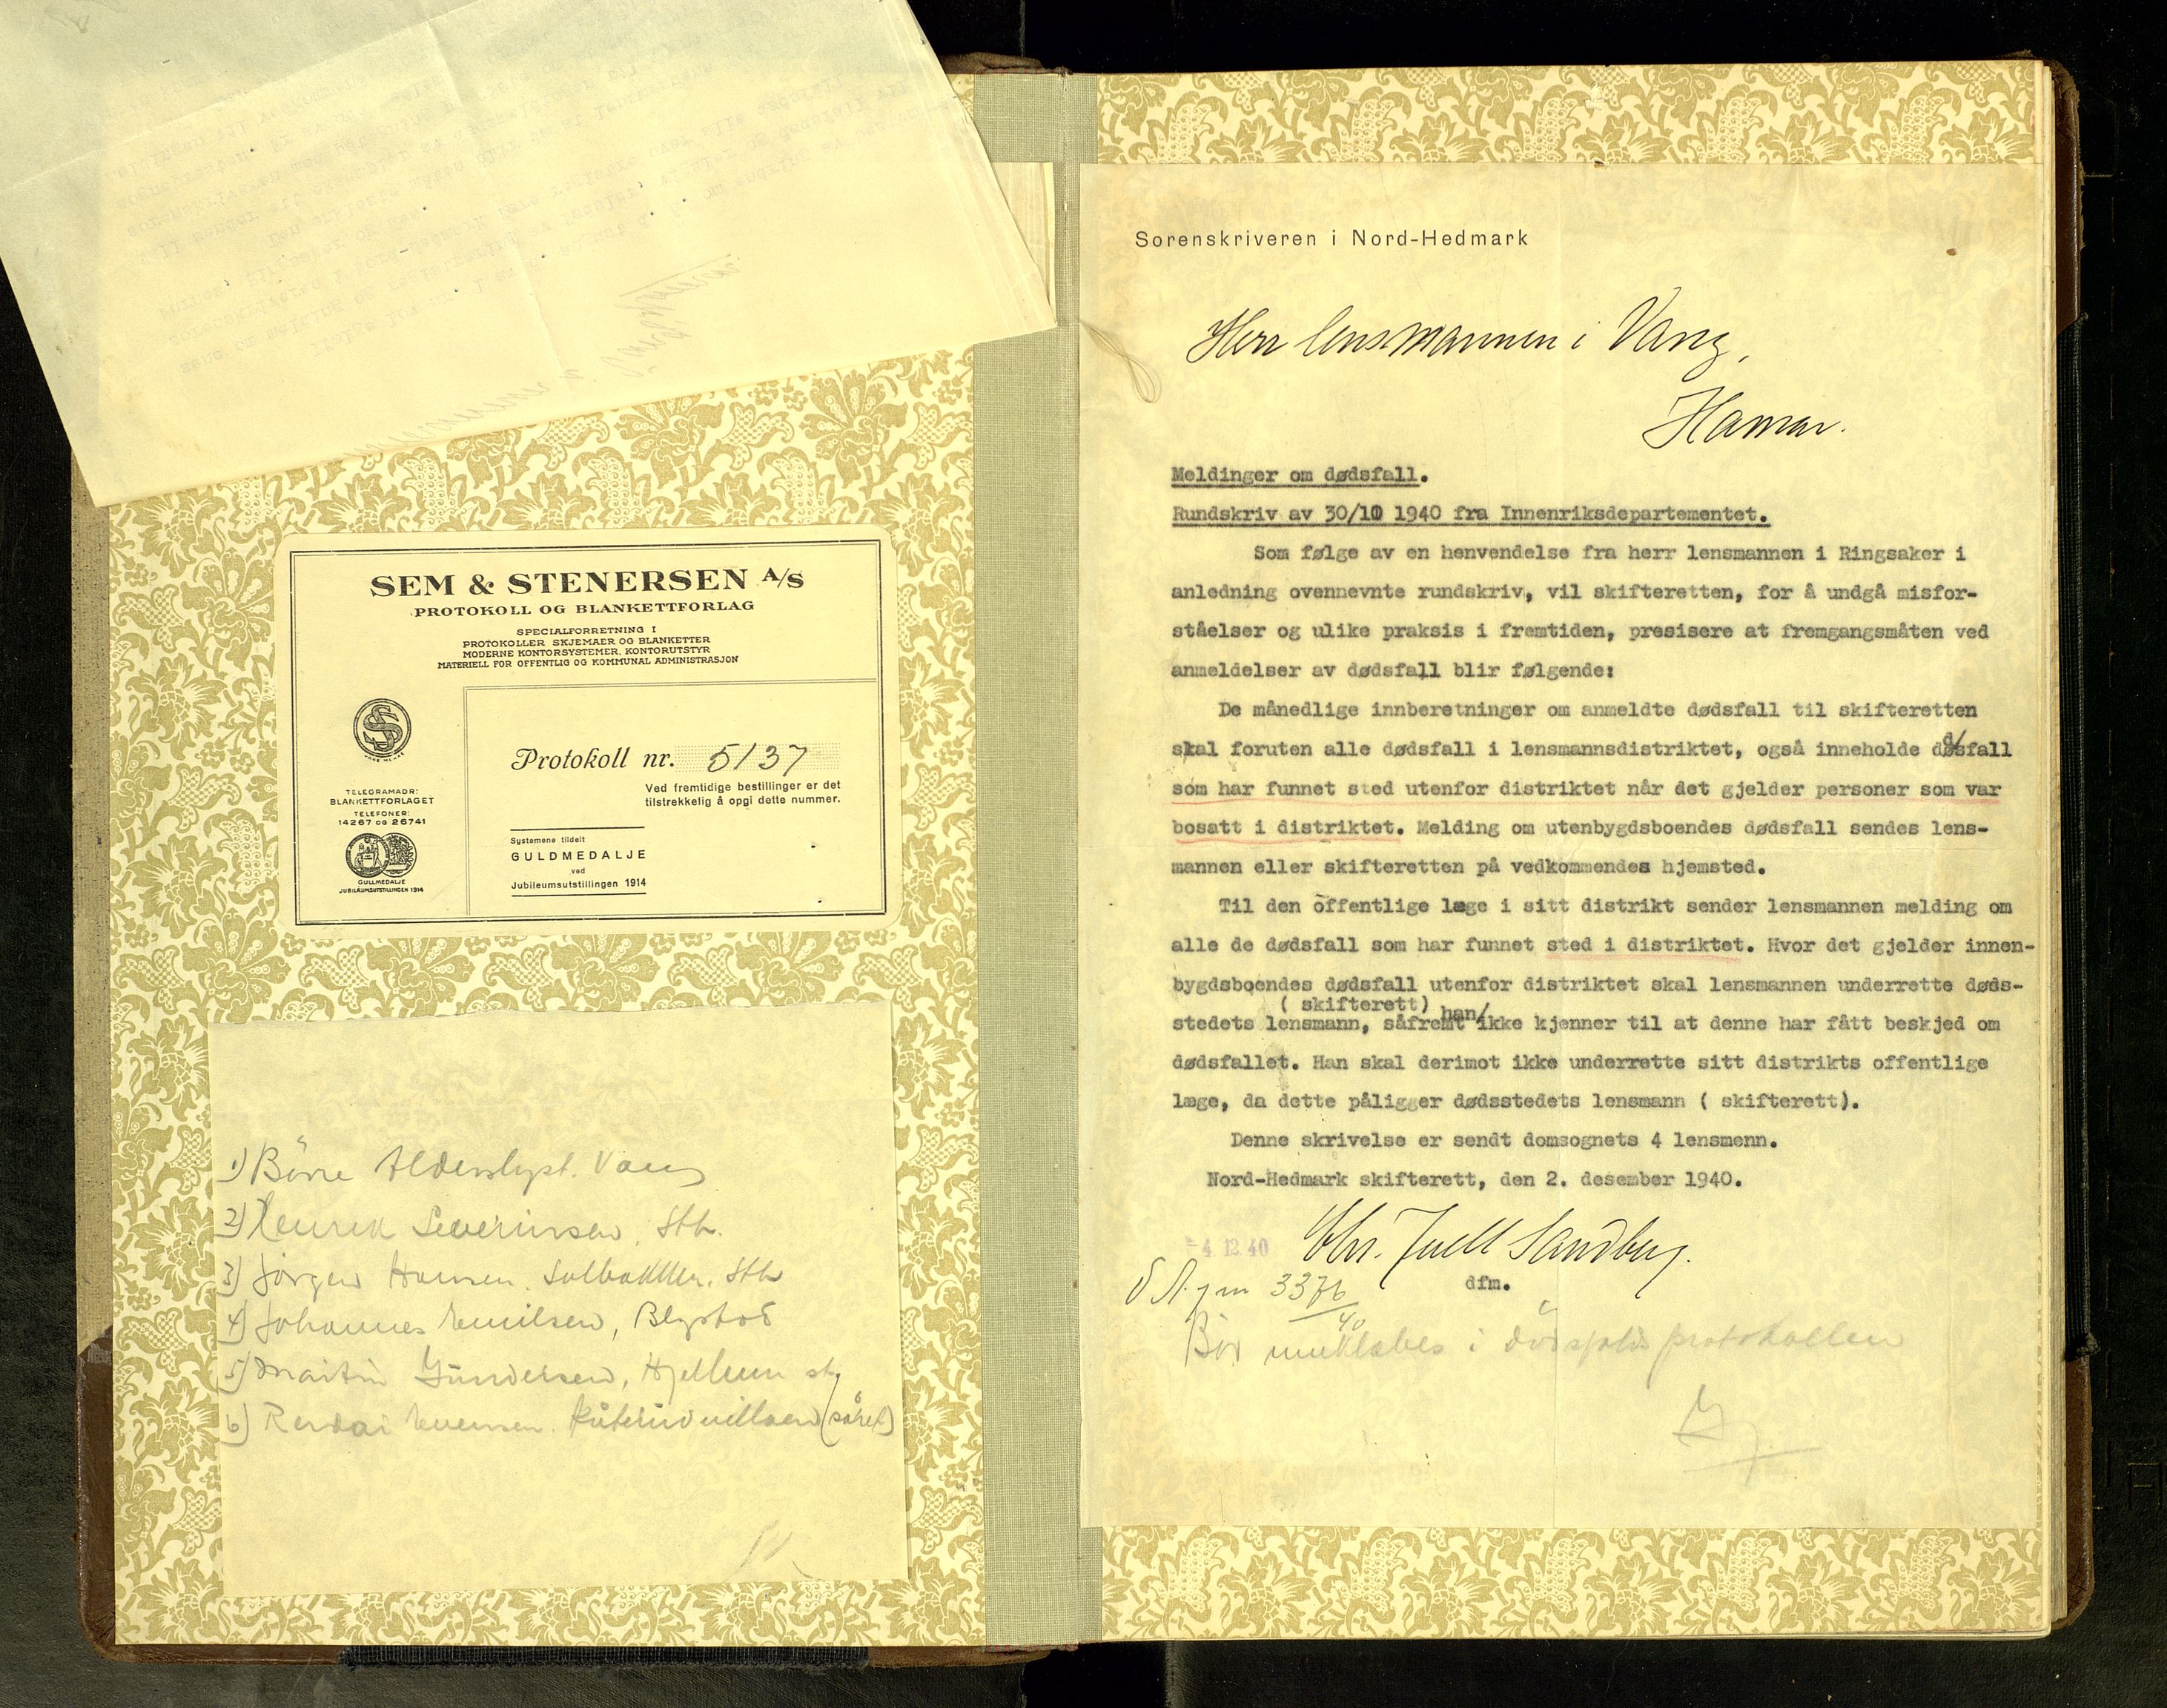 SEM & STENERSEN A/S
PROTOKOLL OG BLANKETTFORLAG
SPECIALFORRETNING I
PROTOKOLLER SKJEMAER OG BLANKETTER
MODERNE KONTORSYSTEMER, KONTORUTSTYR
MATERIELL FOR OFFENTLIG OG KOMMUNAL ADMINISTRASJON
TELEGRAMADR:
BLANKETTFORLAGET
TELEFONER:
14267 OG 26741
GULLMEDALJE
JUBILEUMSUTSTILLINGEN 1914
Protokoll nr. 5137
Ved fremtidige bestillinger er det
tilstrekkelig å opgi dette nummer.
Systemene tildelt
GULDMEDALJE
ved
Jubileumsutstillingen 1914
1) Børre Alderslyst. Vang
2) Henrik Severinsen, Sth.
3) Jørgen Hansen. Solbakken. Sth
4) Johannes Emilsen, Blystad
5) Martin Gundersen, Hjellum st.
6) Reidar Evensen. (såret)
Sorenskriveren i Nord-Hedmark
Herr lensmannen i Vang,
Hamar.
Meldinger om dødsfall.
Rundskriv av 30/10 1940 fra Innenriksdepartementet.
Som følge av en henvendelse fra herr lensmannen i Ringsaker i
anledning ovennevnte rundskriv, vil skifteretten, for å undgå misfor-
ståelser og ulike praksis i fremtiden, presisere at fremgangsmåten ved
anmeldelser av dødsfall blir følgende:
De månedlige innberetninger om anmeldte dødsfall til skifteretten
skal foruten alle dødsfall i lensmannsdistriktet, også inneholde dødsfall
som har funnet sted utenfor distriktet når det gjelder personer som var
bosatt i distriktet. Melding om utenbygdsboendes dødsfall sendes lens-
mannen eller skifteretten på vedkommendes hjemsted.
Til den offentlige læge i sitt distrikt sender lensmannen melding om
alle de dødsfall som har funnet sted i distriktet. Hvor det gjelder innen-
bygdsboendes dødsfall utenfor distriktet skal lensmannen underrette døds-
( skifterett) han/
stedets lensmann, såfremt ikke kjenner til at denne har fått beskjed om
dødsfallet. Han skal derimot ikke underrette sitt distrikts offentlige
læge, da dette påligger dødsstedets lensmann ( skifterett).
Denne skrivelse er sendt domsognets 4 lensmenn.
Nord-Hedmark skifterett, den 2. desember 1940.
Chr. Juell Sandberg.
-4.12.40
dfm.
3376/40
Bør innklebes i dødsfalls protokollen